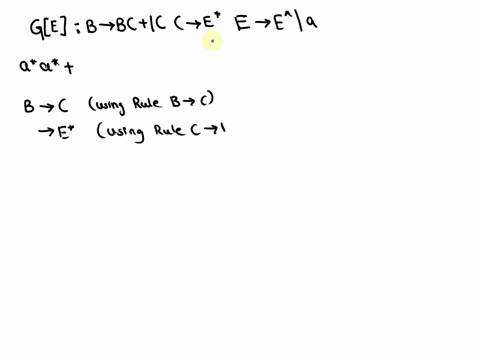 G[E] : B→BC+|C C→E* E→E^|a
a*a*+
B→C (using Rule B→C)
→E* (using Rule C→1